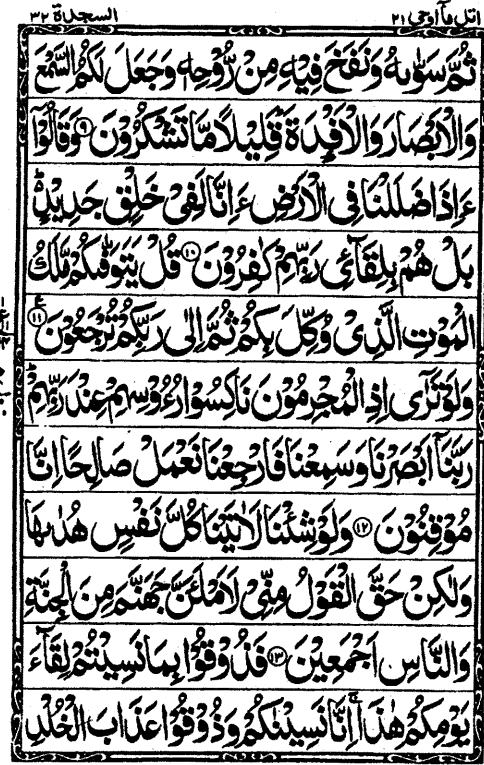 اتل مآ اوحی ٢١ السجدة ٣٢
ثُمَّ سَوّٰىهُ وَنَفَخَ فِيْهِ مِنْ رُّوْحِهٖ وَجَعَلَ لَكُمُ السَّمْعَ
وَالْاَبْصَارَ وَالْاَفْـِٕدَةَ ؕ قَلِيْلًا مَّا تَشْكُرُوْنَ ۹ وَقَالُوْۤا
ءَاِذَا ضَلَلْنَا فِى الْاَرْضِ ءَاِنَّا لَفِىْ خَلْقٍ جَدِيْدٍ ؕ
بَلْ هُمْ بِلِقَآئِ رَبِّهِمْ كٰفِرُوْنَ ۱۰ قُلْ يَتَوَفّٰىكُمْ مَّلَكُ
الْمَوْتِ الَّذِىْ وُكِّلَ بِكُمْ ثُمَّ اِلٰى رَبِّكُمْ تُرْجَعُوْنَ ۱۱
وَلَوْ تَرٰٓى اِذِ الْمُجْرِمُوْنَ نَاكِسُوْا رُءُوْسِهِمْ عِنْدَ رَبِّهِمْ ؕ
رَبَّنَاۤ اَبْصَرْنَا وَسَمِعْنَا فَارْجِعْنَا نَعْمَلْ صَالِحًا اِنَّا
مُوْقِنُوْنَ ۱۲ وَلَوْ شِئْنَا لَاٰتَيْنَا كُلَّ نَفْسٍ هُدٰىهَا
وَلٰكِنْ حَقَّ الْقَوْلُ مِنِّىْ لَاَمْلَئَنَّ جَهَنَّمَ مِنَ الْجِنَّةِ
وَالنَّاسِ اَجْمَعِيْنَ ۱۳ فَذُوْقُوْا بِمَا نَسِيْتُمْ لِقَآءَ
يَوْمِكُمْ هٰذَا ۚ اِنَّا نَسِيْنٰكُمْ وَذُوْقُوْا عَذَابَ الْخُلْدِ